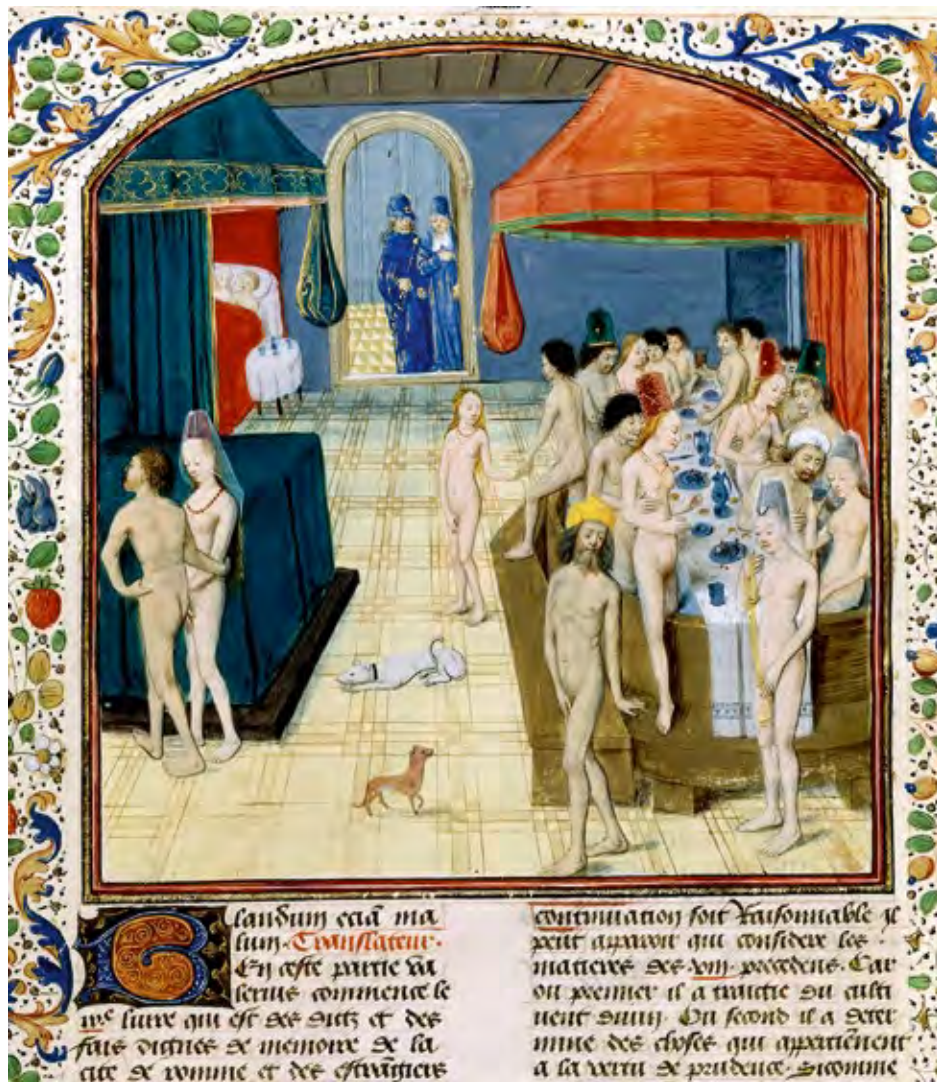 Blandum eciā ma
lum. Translateur.
En ceste partie va
lerius commence le
ixe livre qui est des ditz et des
fais dignes de memoire de la
cite de romme et des estrangiers
continuation soit raisonnable il
peut apparoir qui considere les
matieres des viii precedens. Car
ou premier il a traictie du culti
vement divin. Ou second il a deter
mine des choses qui appartienent
a la vertu de prudence, sicomme